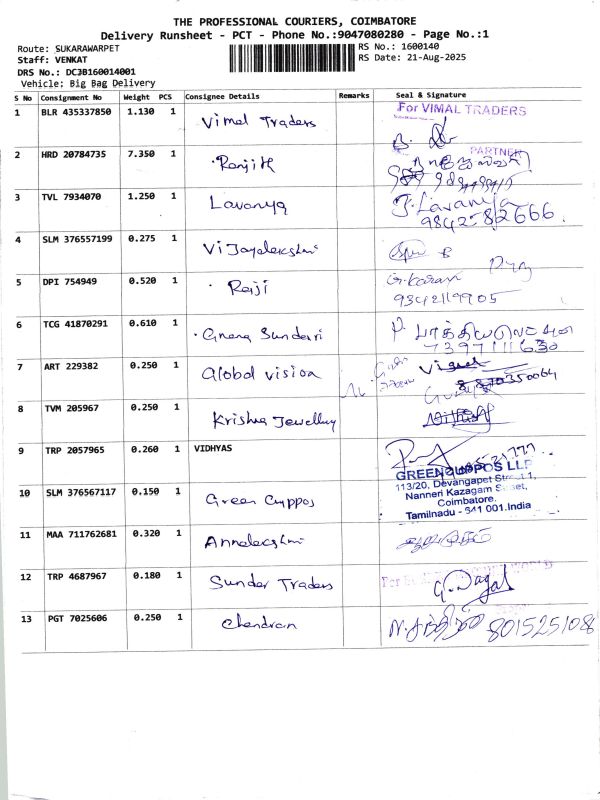 THE PROFESSIONAL COURIERS, COIMBATORE
Delivery Runsheet - PCT - Phone No.:9047080280 - Page No.:1
Route: SUKARAWARPET RS No.: 1600140
Staff: VENKAT RS Date: 21-Aug-2025
DRS No.: DC3B160014001
Vehicle: Big Bag Delivery
S No Consignment No Weight PCS Consignee Details Remarks Seal & Signature
1 BLR 435337850 1.130 1 Vimal Traders For VIMAL TRADERS
PARTNER
2 HRD 20784735 7.350 1 Ranjith
3 TVL 7934070 1.250 1 Lavanya J. Lavanya
9842582666
4 SLM 376557199 0.275 1 Vijayalekshmi
5 DPI 754949 0.520 1 Raiji
9342119905
6 TCG 41870291 0.610 1 Gnana Sundari P.
7397111630
7 ART 229382 0.250 1 Global vision
8 TVM 205967 0.250 1 Krishna Jewellery
9 TRP 2057965 0.260 1 VIDHYAS
10 SLM 376567117 0.150 1 Green Cuppos GREEN LLP
113/20, Devangapet Street 1,
Nanneri Kazagam Street,
Coimbatore.
Tamilnadu - 641 001.India
11 MAA 711762681 0.320 1 Annalekshmi
12 TRP 4687967 0.180 1 Sunder Traders For
13 PGT 7025606 0.250 1 Chendran 8015251088